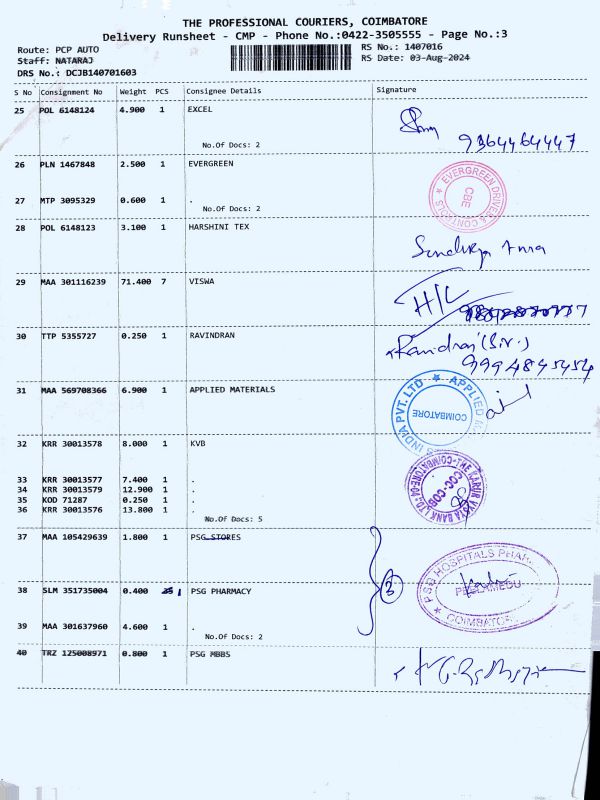 THE PROFESSIONAL COURIERS, COIMBATORE
Delivery Runsheet - CMP - Phone No.:0422-3505555 - Page No.:3
Route: PCP AUTO
RS No.: 1407016
Staff: NATARAJ
RS Date: 03-Aug-2024
DRS No.: DCJB140701603
S No Consignment No Weight PCS Consignee Details Signature
25 POL 6148124 4.900 1 EXCEL
No.Of Docs: 2
9364464447
26 PLN 1467848 2.500 1 EVERGREEN
EVERGREEN DRIVES & CONTROLS
CBE
27 MTP 3095329 0.600 1 .
No.Of Docs: 2
28 POL 6148123 3.100 1 HARSHINI TEX
29 MAA 301116239 71.400 7 VISWA
H/L
30 TTP 5355727 0.250 1 RAVINDRAN
9994845454
31 MAA 569708366 6.900 1 APPLIED MATERIALS
APPLIED
INDIA PVT. LTD
COIMBATORE
32 KRR 30013578 8.000 1 KVB
THE KARUR VYSYA BANK LTD
33 KRR 30013577 7.400 1 .
34 KRR 30013579 12.900 1 .
35 KOD 71287 0.250 1 .
36 KRR 30013576 13.800 1 .
No.Of Docs: 5
37 MAA 105429639 1.800 1 PSG STORES
38 SLM 351735004 0.400 1 PSG PHARMACY
3
PSG HOSPITALS PHAR
PEELAMEDU
COIMBATOR
39 MAA 301637960 4.600 1 .
No.Of Docs: 2
40 TRZ 125008971 0.800 1 PSG MBBS